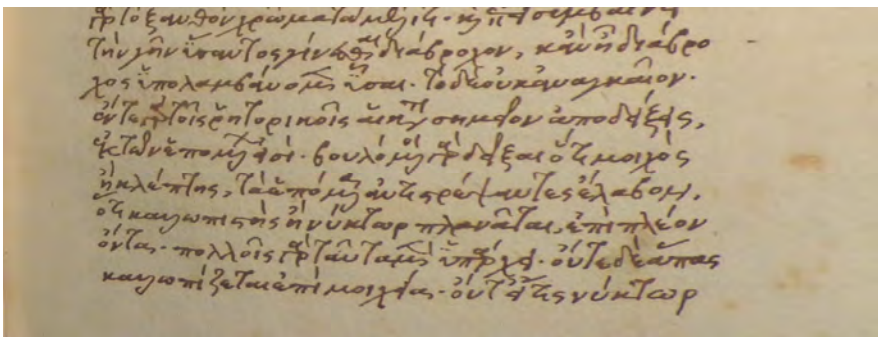 γὰρ τὸ ξανθὸν χρῶμα τῷ μέλιτι· καὶ ἐπεὶ συμβαίνει
τὴν γῆν ὕσαντος γίνεσθαι διάβροχον, κἂν ᾖ διάβρο
χος ὑπολαμβάνομεν ὗσαι· τὸ δὲ οὐκ ἀναγκαῖον·
ἔν τε τοῖς ῥητορικοῖς αἱ κατὰ σημεῖον ἀποδείξεις,
ἐκ τῶν ἑπομένων εἰσί· βουλόμενοι γὰρ δεῖξαι ὅτι μοιχὸς
ἢ κλέπτης, τὰ ἑπόμενα ἀντιστρέψαντες ἔλαβον,
ὅτι καλλωπιστὴς ἢ νύκτωρ πλανᾶται, ἐπιπλέον
ὄντα· πολλοῖς γὰρ ταῦτα μὲν ὑπάρχει· οὔτε δὲ ἅπας
καλλωπίζεται ἐπὶ μοιχείας· οὔτε τις νύκτωρ